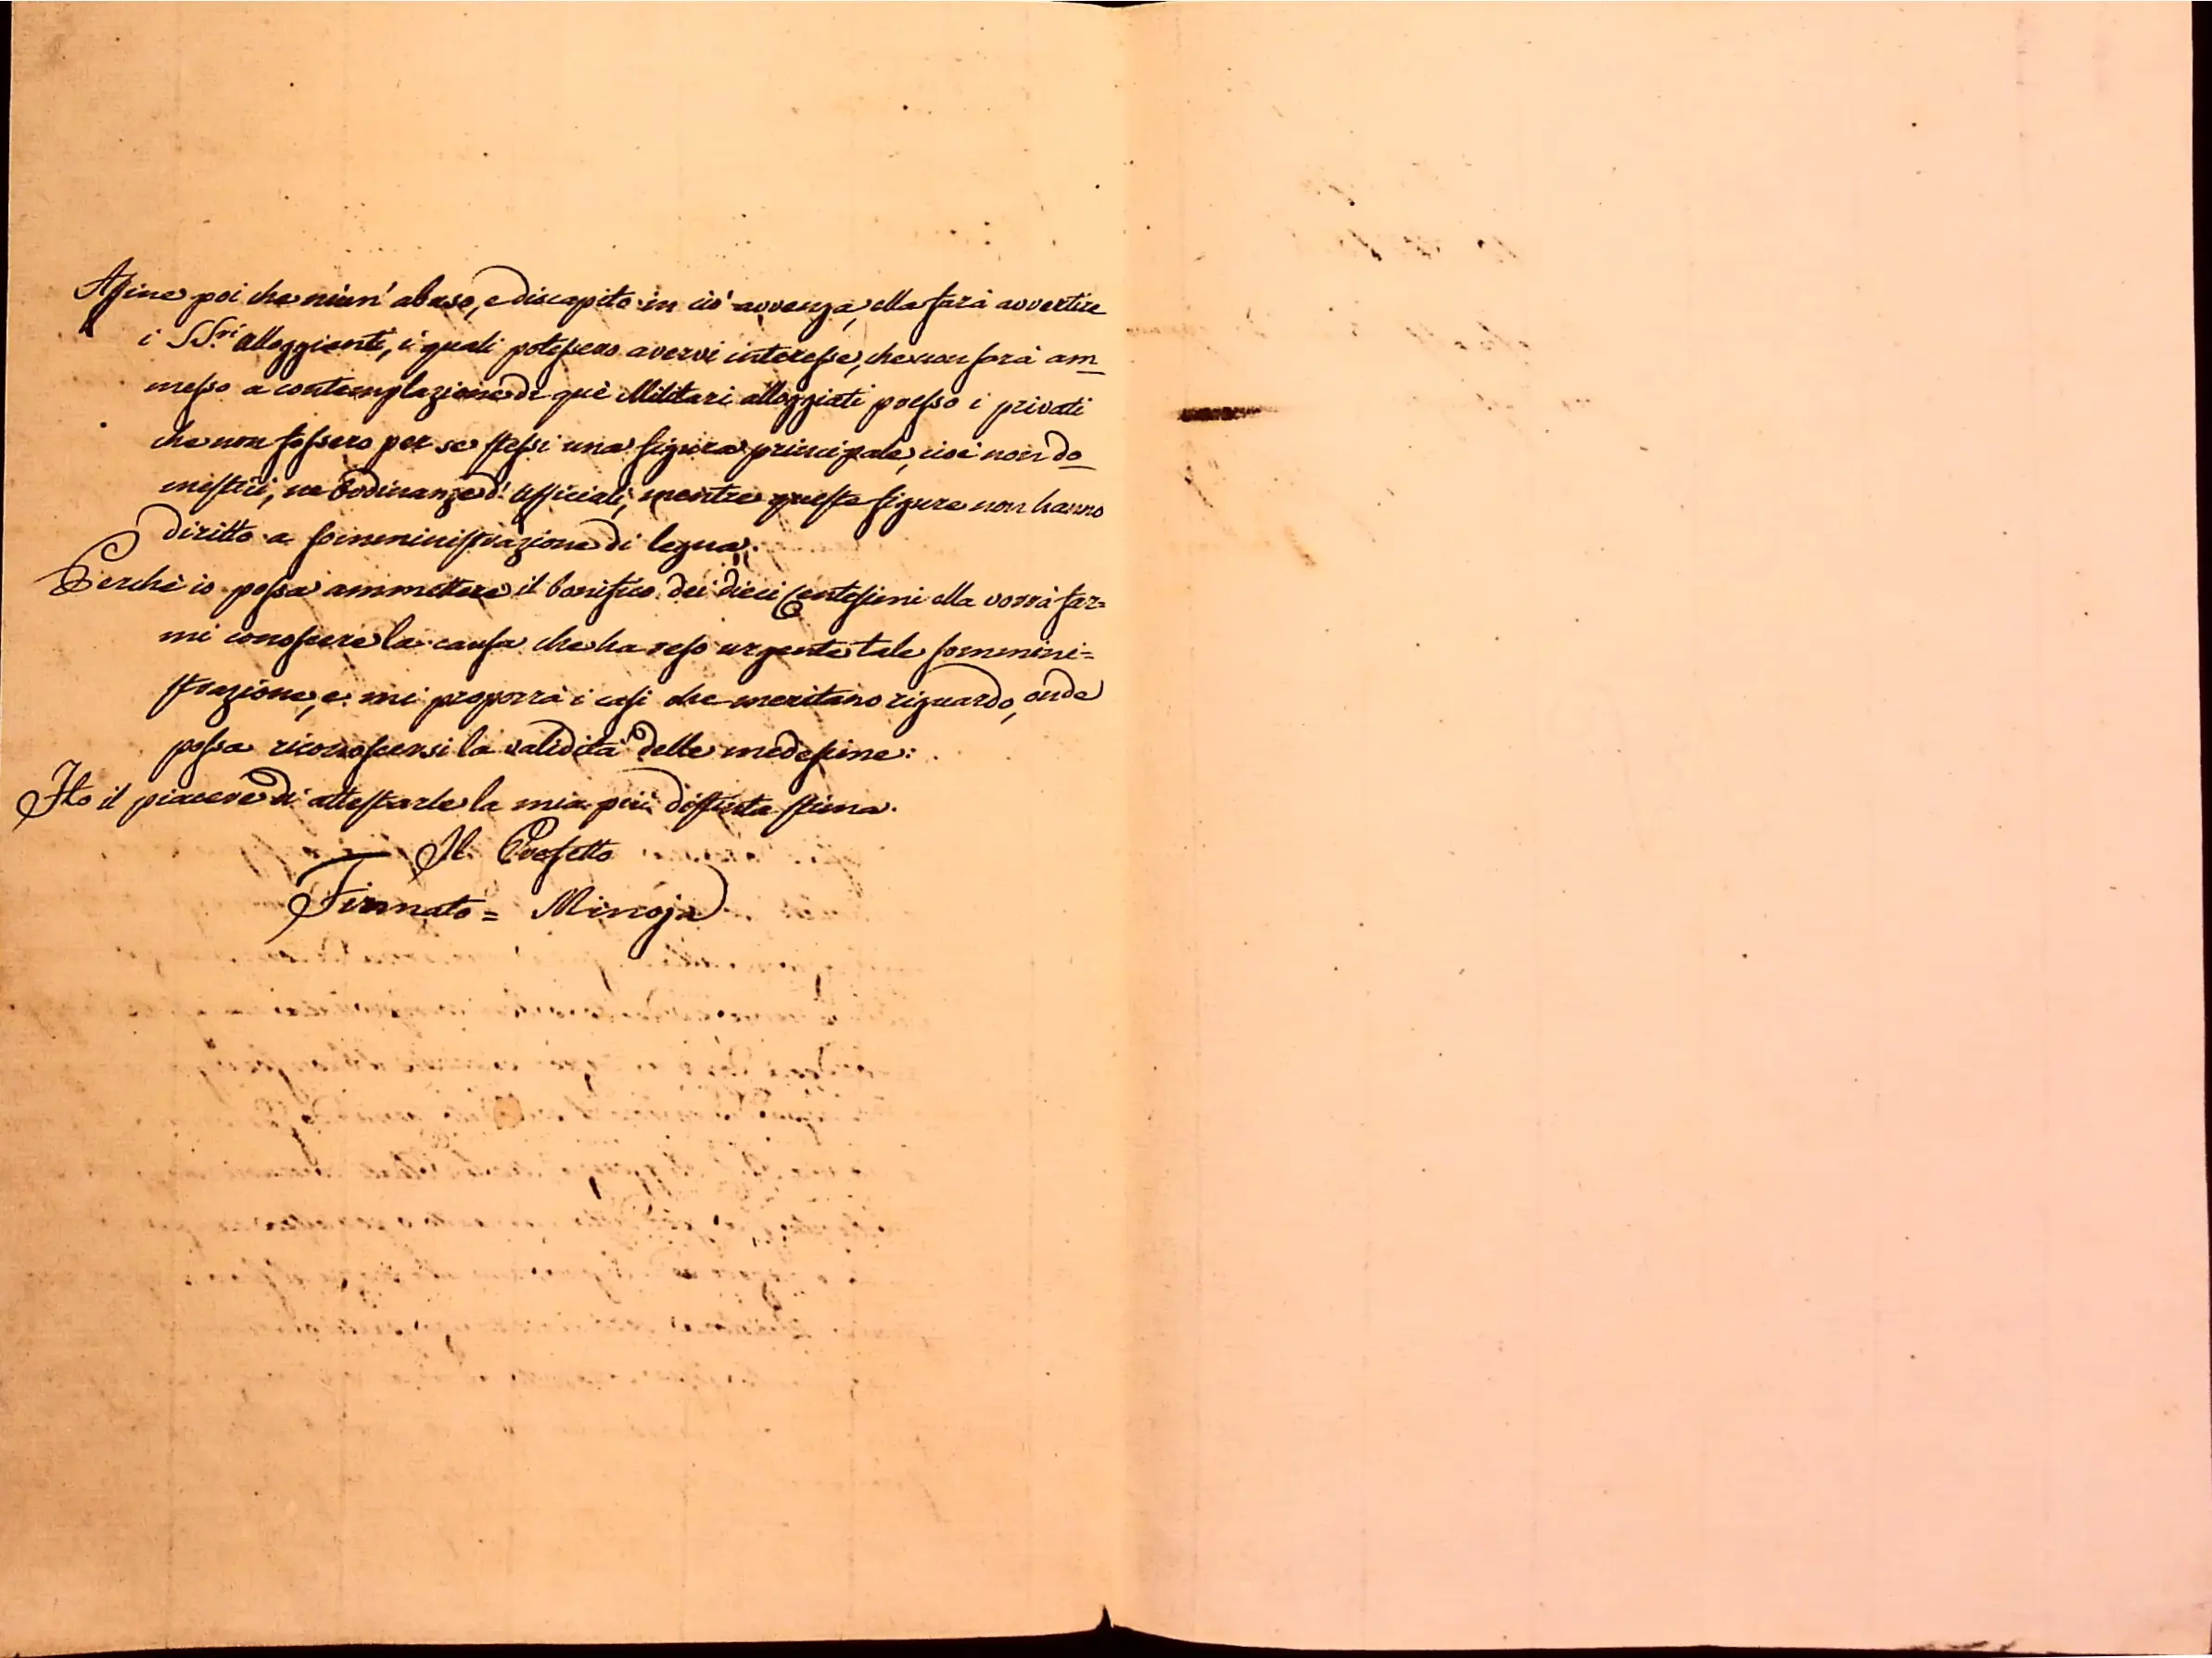 Afine poi che niun' abuso, e discapito in ciò avvenga, ella farà avvertire
i SS.ri alloggianti, i quali potessero avervi interesse, che non sarà am_
messo a contemplazione di que' Militari alloggiati presso i privati
che non fossero per se stessi una figura principale, cioè non do_
mestici, ne Ordinanze d' Ufficiali, mentre queste figure non hanno
diritto a somministrazione di legna.
Perchè io possa ammettere il bonifico dei dieci Centesimi ella vorrà far=
mi conoscere la causa che ha reso urgente tale sommini=
strazione, e mi proporrà i casi che meritano riguardo, onde
possa riconoscersi la validità delle medesime:
Ho il piacere di attestarle la mia più distinta stima.
Il Prefetto
Firmato = Minoja